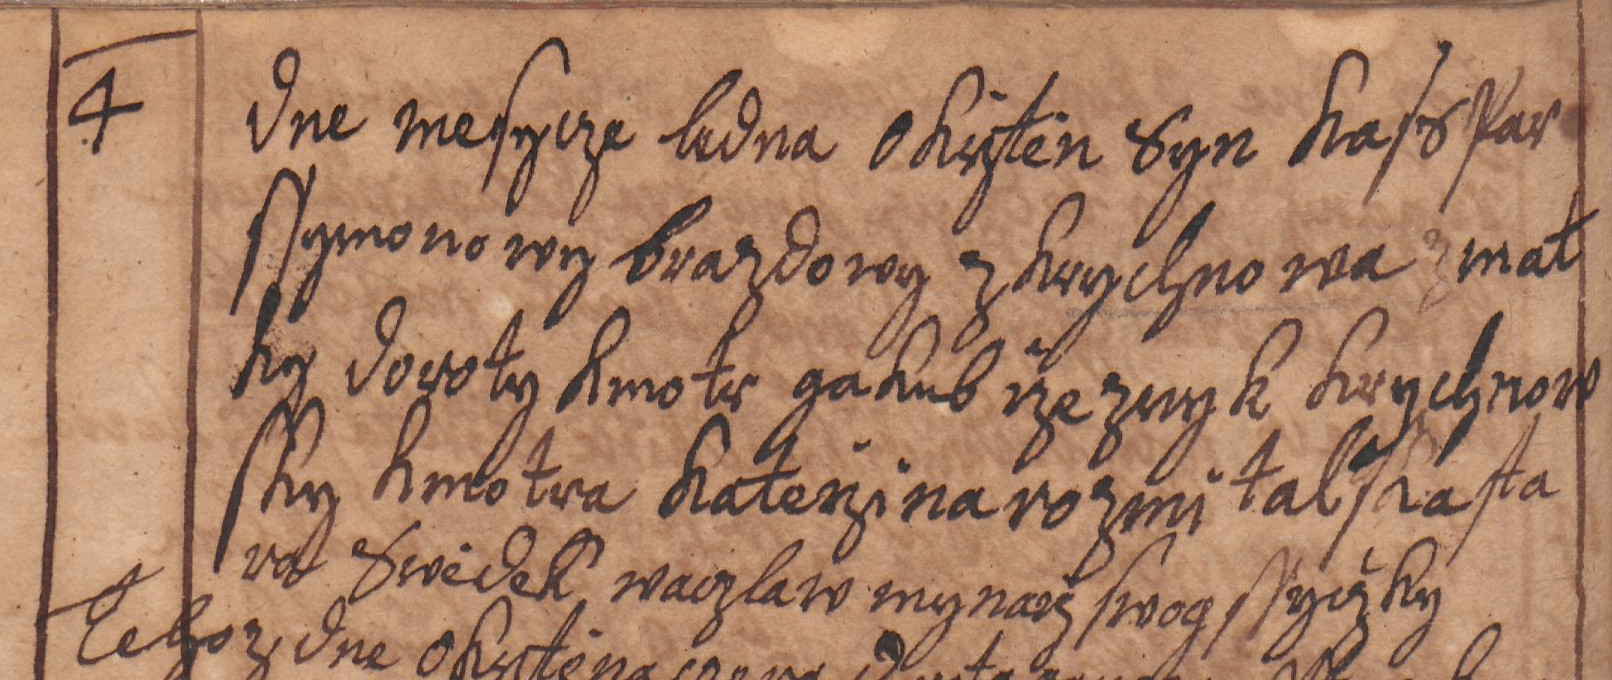 4 dne mesycze ledna okrzten syn kasspar
ssymonowy brazdowy z krychnowa z mat
ky doroty kmotr gakub rzezwyk krychnow
sky kmotra katerzina rozmitalska sta
ra swedek waczlaw mynarz swog
tehoz dne okrztena